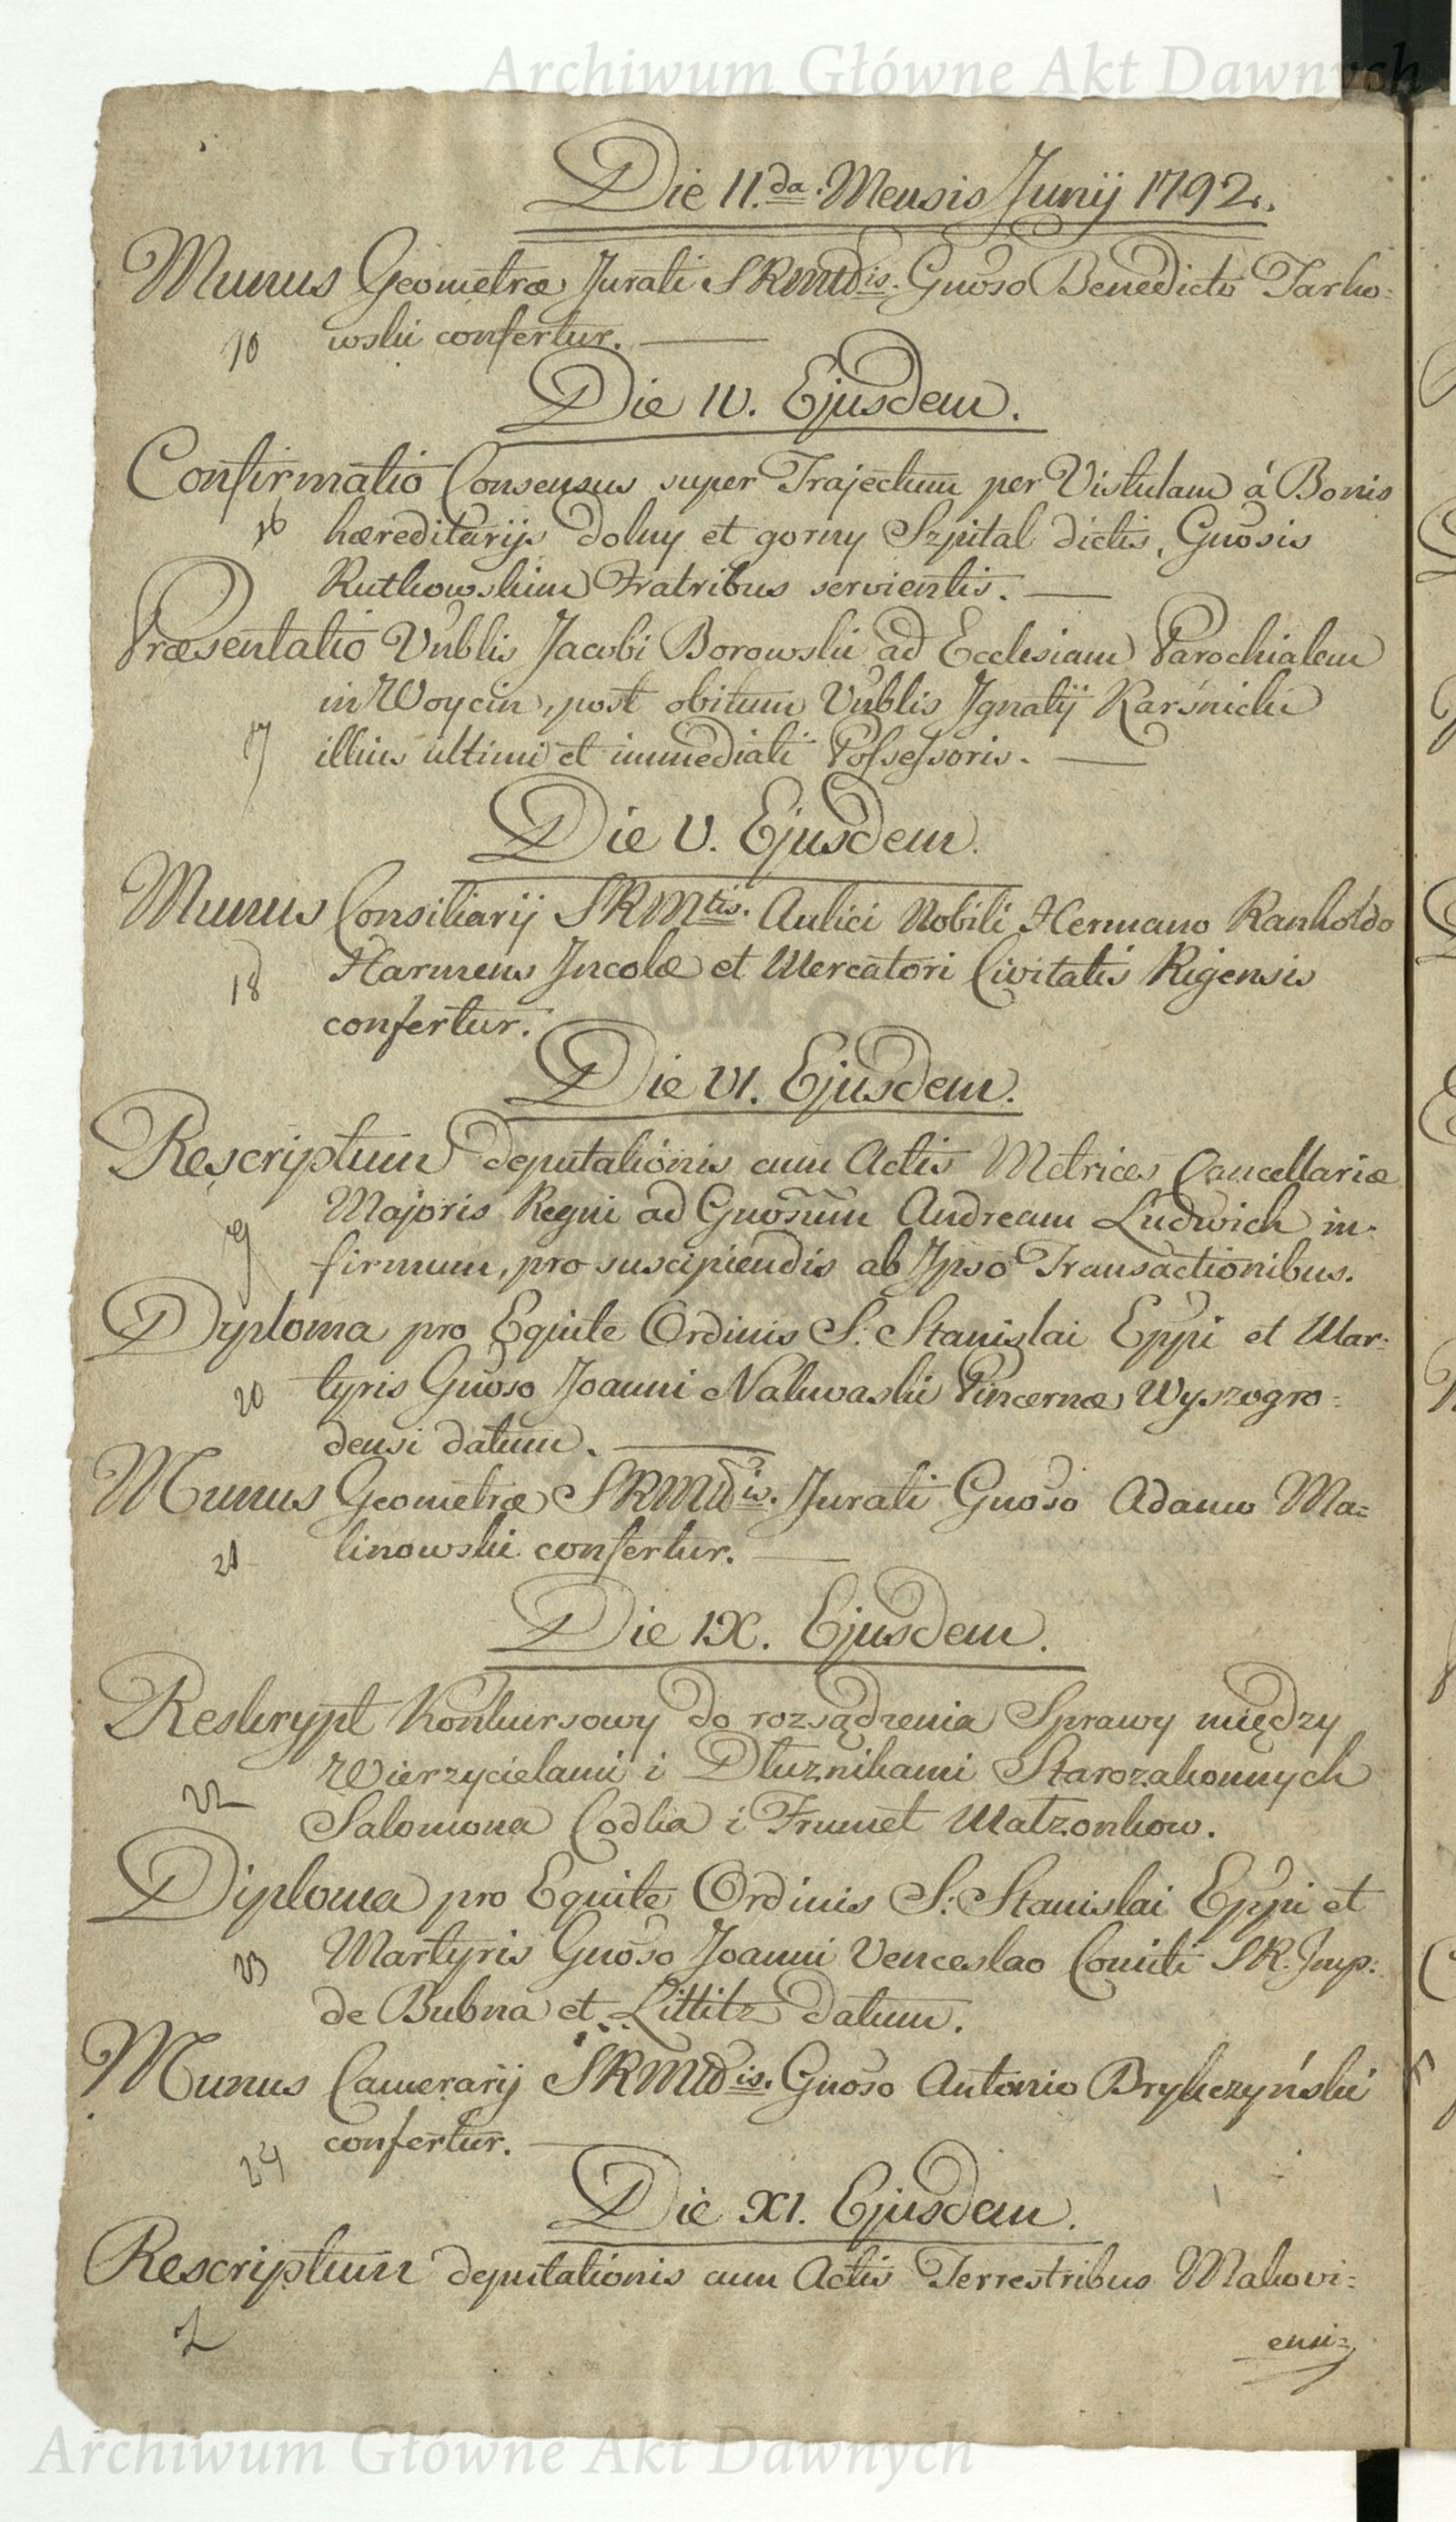 Archiwum Główne Akt Dawnych
Die II.da Mensis Junij 1792.
Munus Geometræ Jurati SRMttis. Gnoso Benedicto Tarko=
10 wski confertur.
Die IV. Ejusdem.
Confirmatio Consensus super Trajectum per Vistulam à Bonis
16 hæreditarijs dolny et gorny Szpital dictis, Gnosis
Rutkowskim Fratribus servientis.
Præsentatio Vnblis Jacobi Borowski ad Ecclesiam Parochialem
in Woycin, post obitum Vnblis Jgnatij Karśnicki
17 illius ultimi et immediati Possessoris.
Die V. Ejusdem.
Munus Consiliarij SRMttis. Aulici Nobili Hermano Ranholdo
18 Harmens Jncolæ et Mercatori Civitatis Rigensis
confertur.
Die VI. Ejusdem.
Rescriptum deputationis cum Actis Metrices Cancellariæ
Majoris Regni ad Gnosum Andream Ludwich in=
9 firmum, pro suscipiendis ab Jpso Transactionibus.
Dyploma pro Equite Ordinis S. Stanislai Eppi et Mar=
20 tyris Gnoso Joanni Nakwaski Pincernæ Wyszogro=
densi datum.
Munus Geometræ SRMttis. Jurati Gnoso Adamo Ma=
21 linowski confertur.
Die IX. Ejusdem.
Reskrypt Konkursowy do rozsądzenia Sprawy między
Wierzycielami i Dłuznikami Starozakonnych
22 Salomona Codka i Frumet Małzonkow.
Diploma pro Equite Ordinis S. Stanislai Eppi et
23 Martyris Gnoso Joanni Venceslao Comiti SR. Jmp:
de Bubna et Littitz datum.
Munus Camerarij SRMttis. Gnoso Antonio Brykczyński
24 confertur.
Die XI. Ejusdem.
Rescriptum deputationis cum Actis Terrestribus Makovi=
ensi=
Archiwum Główne Akt Dawnych